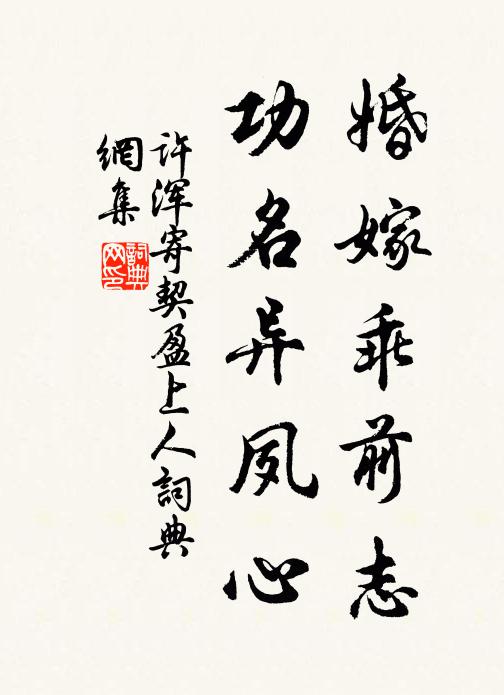 婚嫁乖前志
功名异夙心
许浑寄契盈上人詞典
網集
詞典
网印